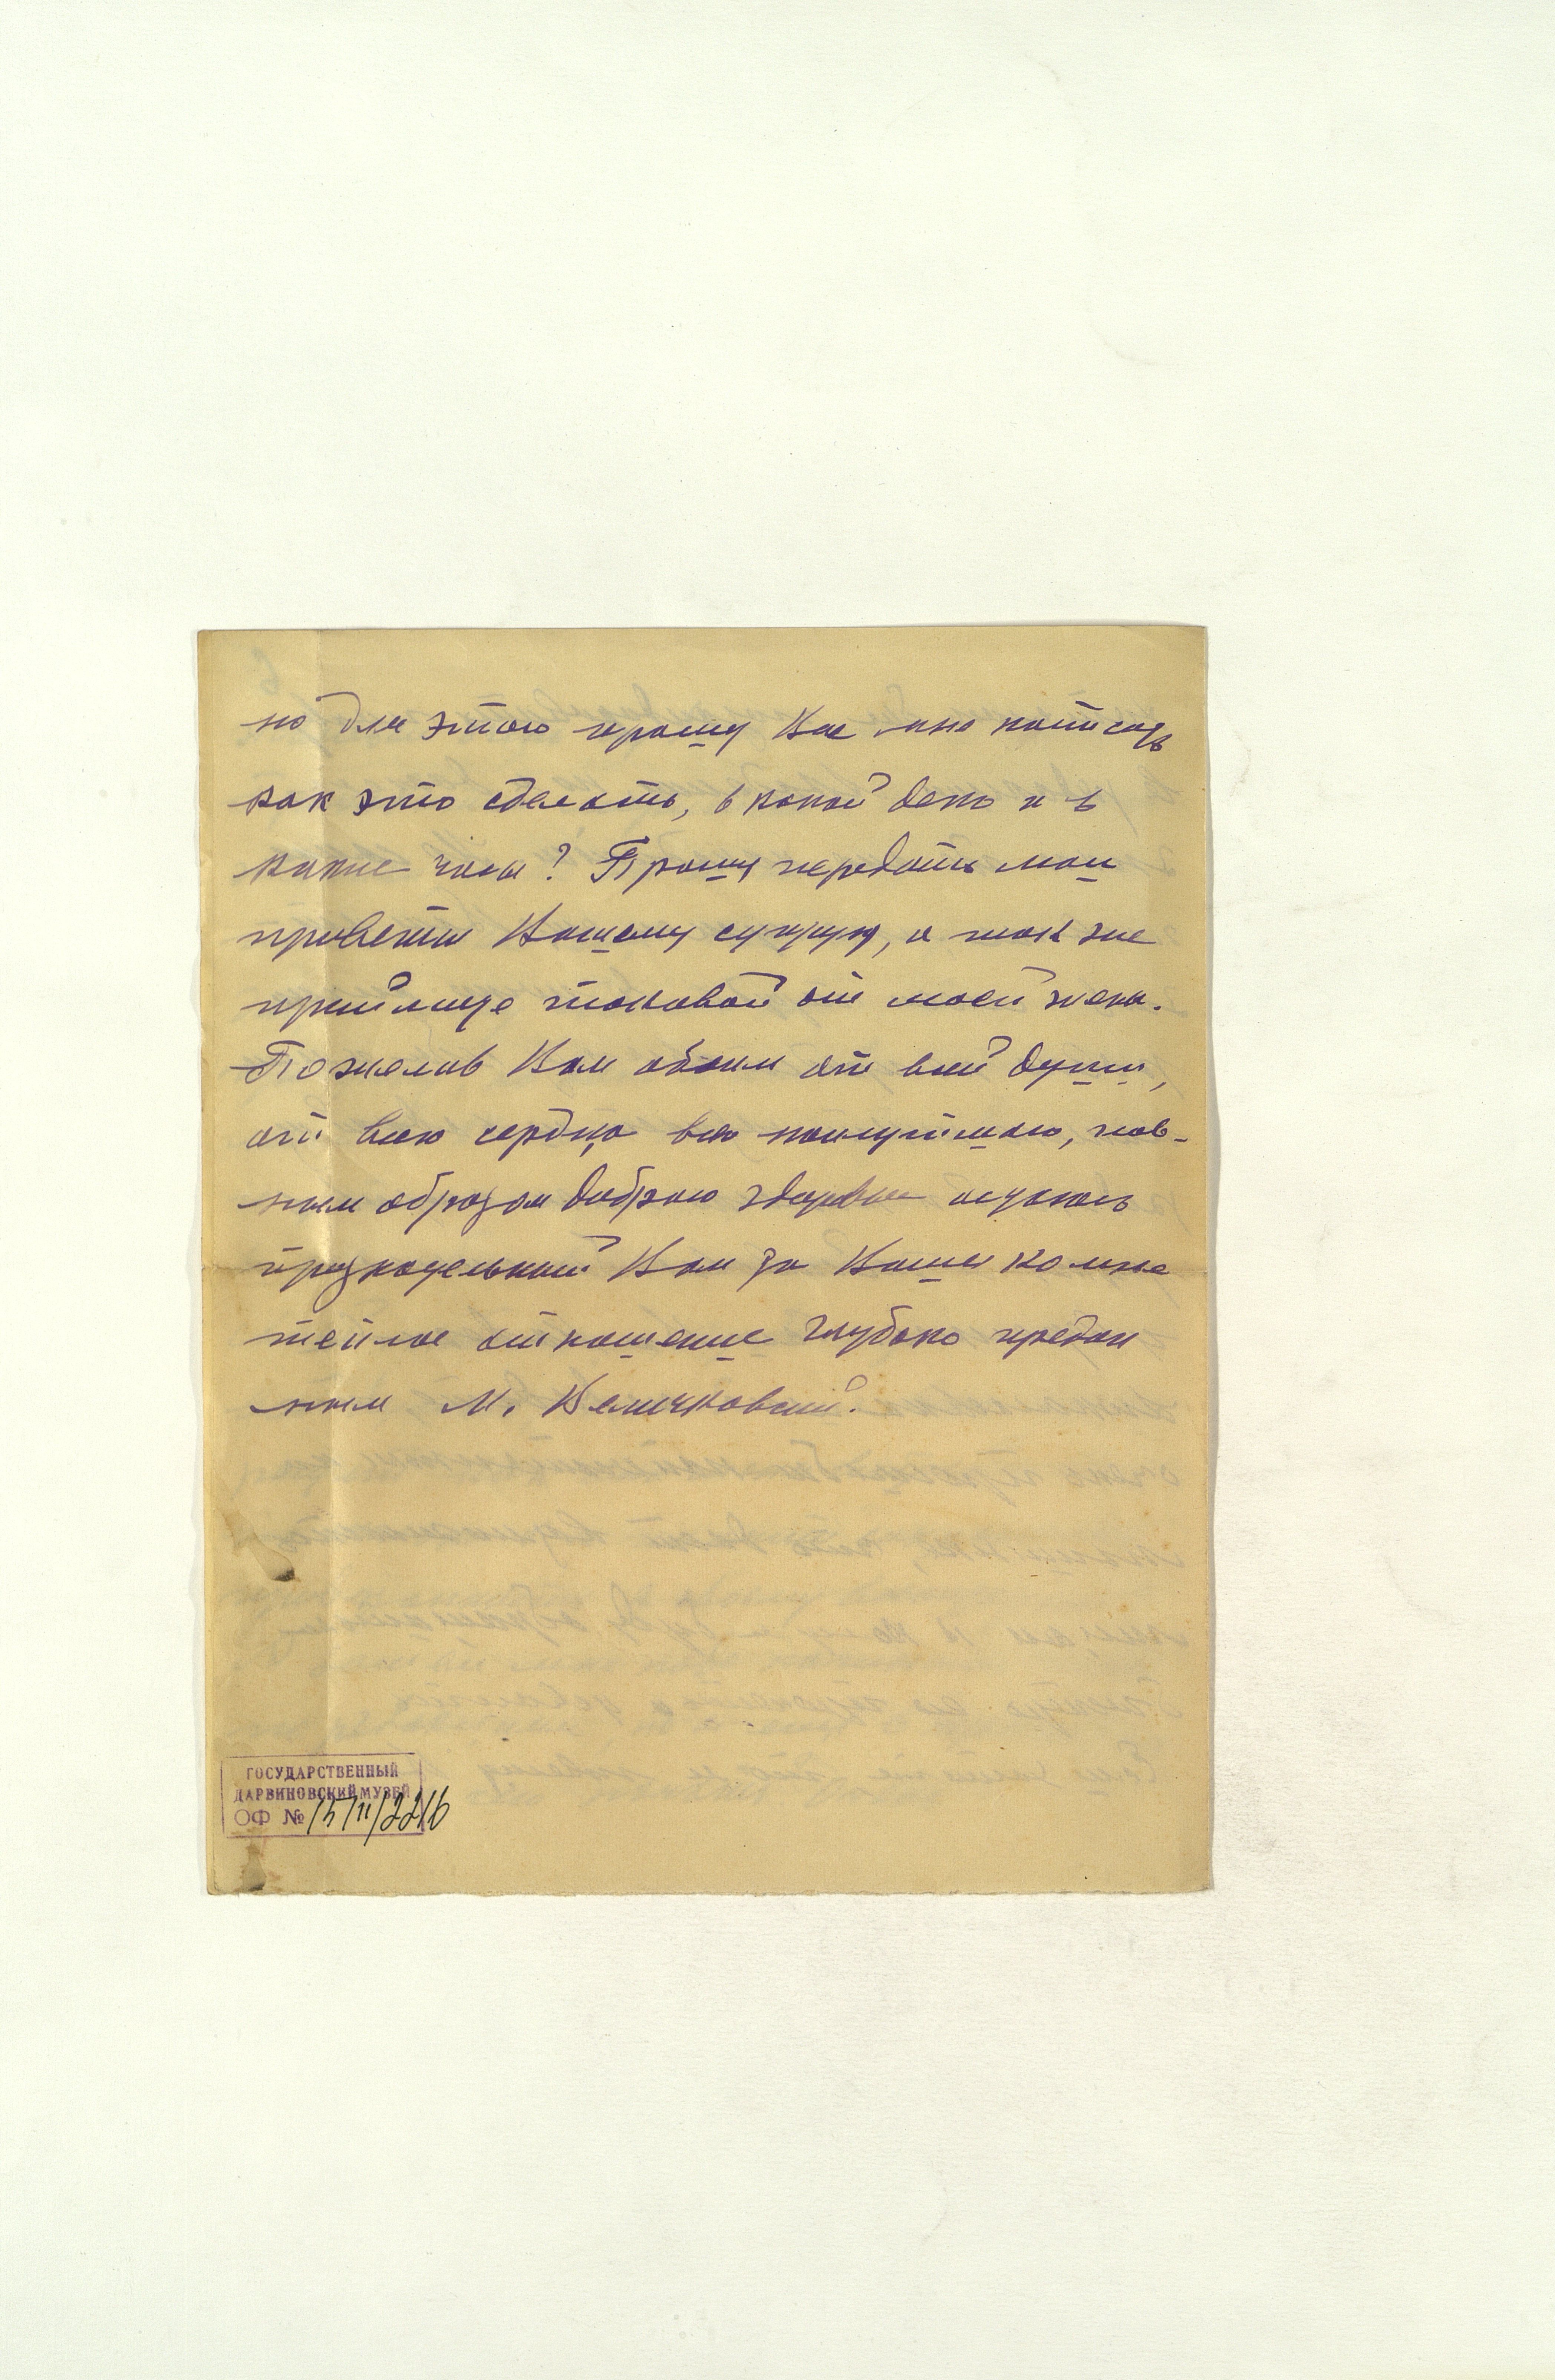 но для этого прошу Вас мне написать
как это сделать, в какой день и в
какие часы? Прошу передать мои
приветы Вашему супругу, а так же
примите таковой от моей жены.
Пожелав Вам обоим от всей души,
от всего сердца все наилучшего, глав-
ным образом доброго здоровья остаюсь
признательный Вам за Ваше ко мне
теплое отношение глубоко предан
ным М. Величковский.
ГОСУДАРСТВЕННЫЙ
ДАРВИНОВСКИЙ МУЗЕЙ
ОФ №